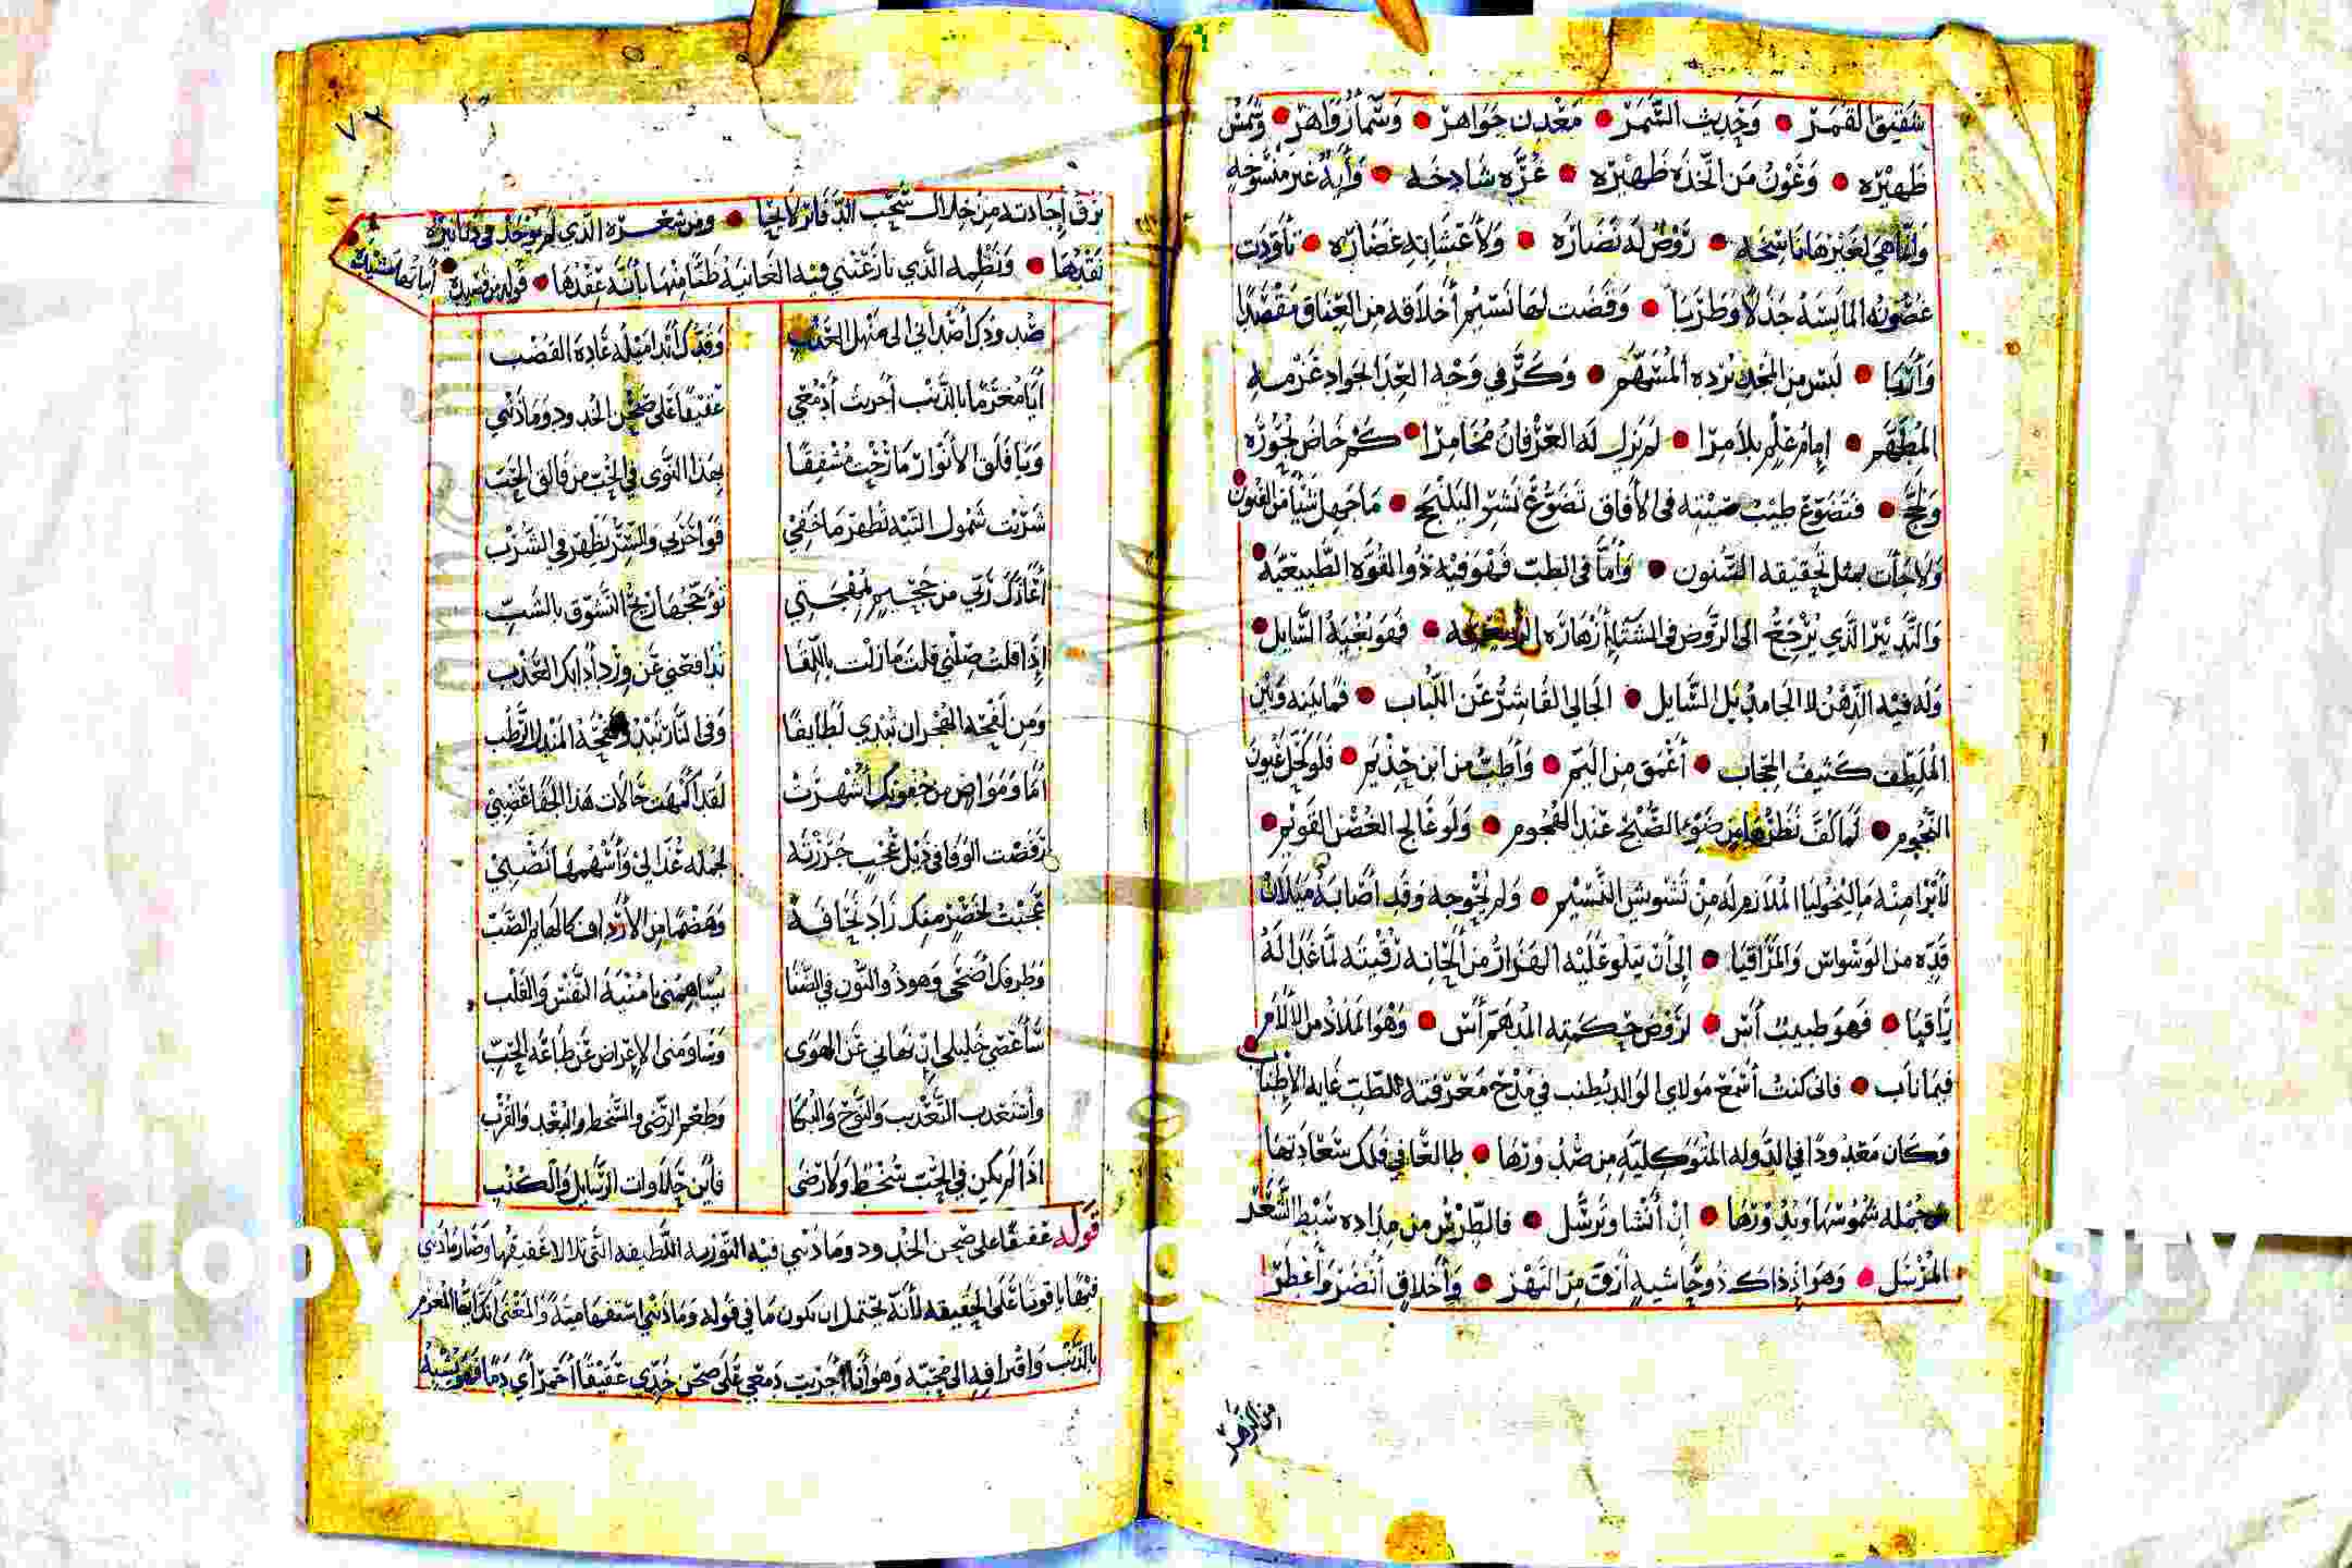 شقيق القمر • وحديث السمر • معدن جواهر • وسماء زواهر • وشمس
ظهيره • وعون من النجده ظهيره • غره شادخه • وآية غير منسوخه
وانما هي لغيرها ناسخه • روض له نضاره • ولاعشابه غضاره • تأودت
غصونه المايسة جذلا وطربا • وقضت لها نسيم أخلاقه من العناق مقصدا
وأربا • لبس من المجد برده المسهم • وكر في وجه العدا الجواد عزمه
المطهم • إمام علم بلا مرا • لم يزل له العرفان مخامرا • كم خاض بحوره
ولجج • فتضوع طيب صيته في الآفاق تضوع نشر اليلنجج • ما جهل شيئا من الفنون
ولا جأت بمثل تحقيقه السنون • وأما في الطب فهو فيه ذو القوه الطبيعية
والتدبير الذي يرجع الى الروض في الشتا أزهاره • فهو بغية السايل
وله فيه الذهن لا الجامد بل السايل • الجالي القاشر عن اللباب • فما بينه وبين
الملطف كثيف الحجاب • أعمق من اليم • وأطب من ابن حذيم • فلو كحل عيون
النجوم • لما كف نظرها من ضوء الصبح عند الهجوم • ولو عالج الغصن القويم
لأبرا منه ماليخوليا الملازم له من تشويش النسيم • ولم يحوجه وقد أصابه ميلان
قده من الوسواس والمراقيا • إلى أن يتلو عليه الهزار من ألحانه رقيته لما غدا له
راقيا • فهو طبيب آس • لروض حكمته المدهم آس • وهو الملاذ من الآلام
فيما ناب • فاني كنت أسمع مولاي الوالد يطنب في مدح معرفته للطب غاية الإطناب
وكان معدودا في الدوله المتوكلية من صدورها • طالعا في فلك سعادتها
من جمله شموسها وبدورها • إن أنشا وترسل • فالطرس من مداده سبط الشعر
المرسل • وهو إذ ذاك ذو حاشية أرق من النهر • وأخلاق أنضر وأعطر
من الزهر
٧٢
برق إجادته من خلال سحب الدفاتر لايحا • ومن شعره الذي لم يوخذ في دنانيره
نقدها • ونظمه الذي نازعتني فيه الغانية ظنا منها بأنه عقدها • قوله من قصيدة • أبياتها مشيدة
صدودك أصداني الى منهل العذب
وقدك أبدا ميله عادة القضب
أيا مغرما بالذنب أجريت أدمعي
عقيقا على صحن الخدود وما ذنبي
ويا فلق الأنوار ما زحت مشفقا
بهذا النوى في الحب من فالق الحب
شربت شمول التيه تظهر ما خفي
فواحزني والسر يظهر في الشرب
أعاذك ربي من جحيم بمهجتي
توججها ريح التشوق بالشب
إذا قلت صلني قلت ما زلت باللقا
تدافعني عن ورد ذاك العذب
ومن لفحة الهجران تبدي لطايفا
وفي النار تبدو نفحة المندل الرطب
أما ومواض من جفونك أشهرت
لقد ألهبت حالات هذا الجفا غضبي
رفضت الوفا في ذيل عجب جررته
لجمله عذالي وأسهمها نصبي
عجبت لخصر منك زاد نحافة
وهضما من الأرداف كالهايم الصب
وطرفك أضحى وهو ذو النون في الضنا
يساهمني يا منية النفس والقلب
سأعصي خليلي ان نهاني عن الهوى
وساومني الإعراض عن طاعة الحب
وأستعذب التعذيب والنوح والبكا
وطعم الرضى والسخط والبعد والقرب
اذا لم يكن في الحب سخط ولا رضى
فأين حلاوات الرسايل والكتب
قوله عقيقا على صحن الخدود وما ذنبي فيه التوريه اللطيفه التي تلالا عقيقها وصار ماذنبي
فيها ياقوتا على الحقيقه لأنه يحتمل ان يكون ما في قوله وما ذنبي استفهامية والمعنى انك ايها المغرم
بالذنب واقترافه الى محبه وهو أنا أجريت دمعي على صحن خدي عقيقا أحمر أي دما فهو يشبه